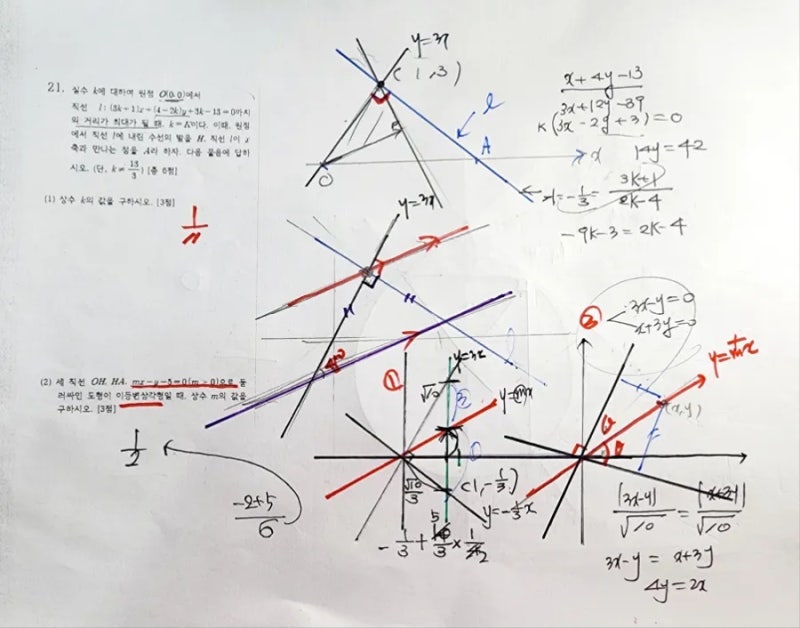 21. 실수 k에 대하여 원점 O(0,0)에서
직선 l : (3k+1)x+(4-2k)y+3k-13=0까지
의 거리가 최대가 될 때, k=K이다. 이때, 원점
에서 직선 l에 내린 수선의 발을 H, 직선 l이 x
축과 만나는 점을 A라 하자. 다음 물음에 답하
시오. (단, k≠13/3) [총 6점]
(1) 상수 k의 값을 구하시오. [3점]
1/11
(2) 세 직선 OH, HA, mx-y-5=0(m>0)으로 둘
러싸인 도형이 이등변삼각형일 때, 상수 m의 값을
구하시오. [3점]
1/2
-2+5/6
y=3x
(1,3)
l
A
x
O
x+4y-13
3x+12y-39
K(3x-2y+3)=0
14y=42
-1/3=3k+1/2k-4
-9k-3=2k-4
y=3x
l
①
y=3x
√10
y=mx
√10/3
(1,-1/3)
y=-1/3x
-1/3+10/3×1/2
5
②
3x-y=0
x+3y=0
(x,y)
|3x-y|/√10=|x+3y|/√10
3x-y=x+3y
4y=2x